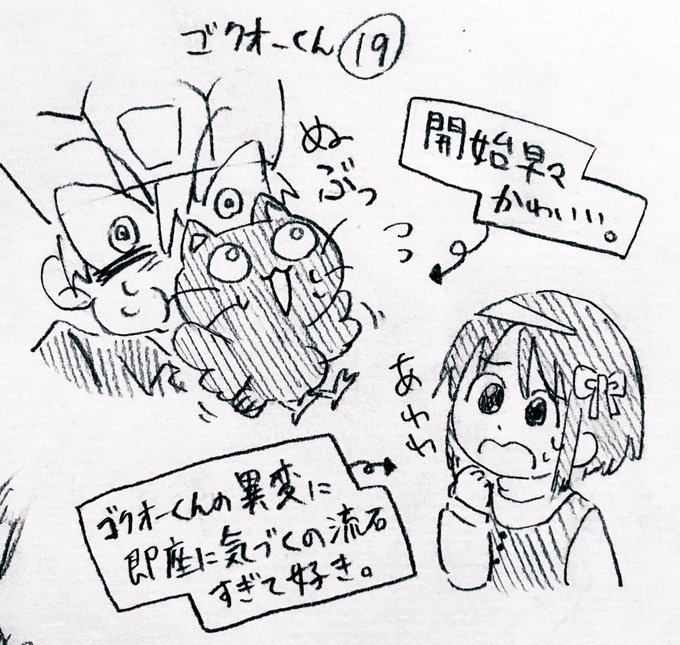 ゴクオーくん⑲
開始早々
かわいい。
ぬ
ぶっ
っっ
あわわ
ゴクオーくんの異変に
即座に気づくの流石
すぎて好き。